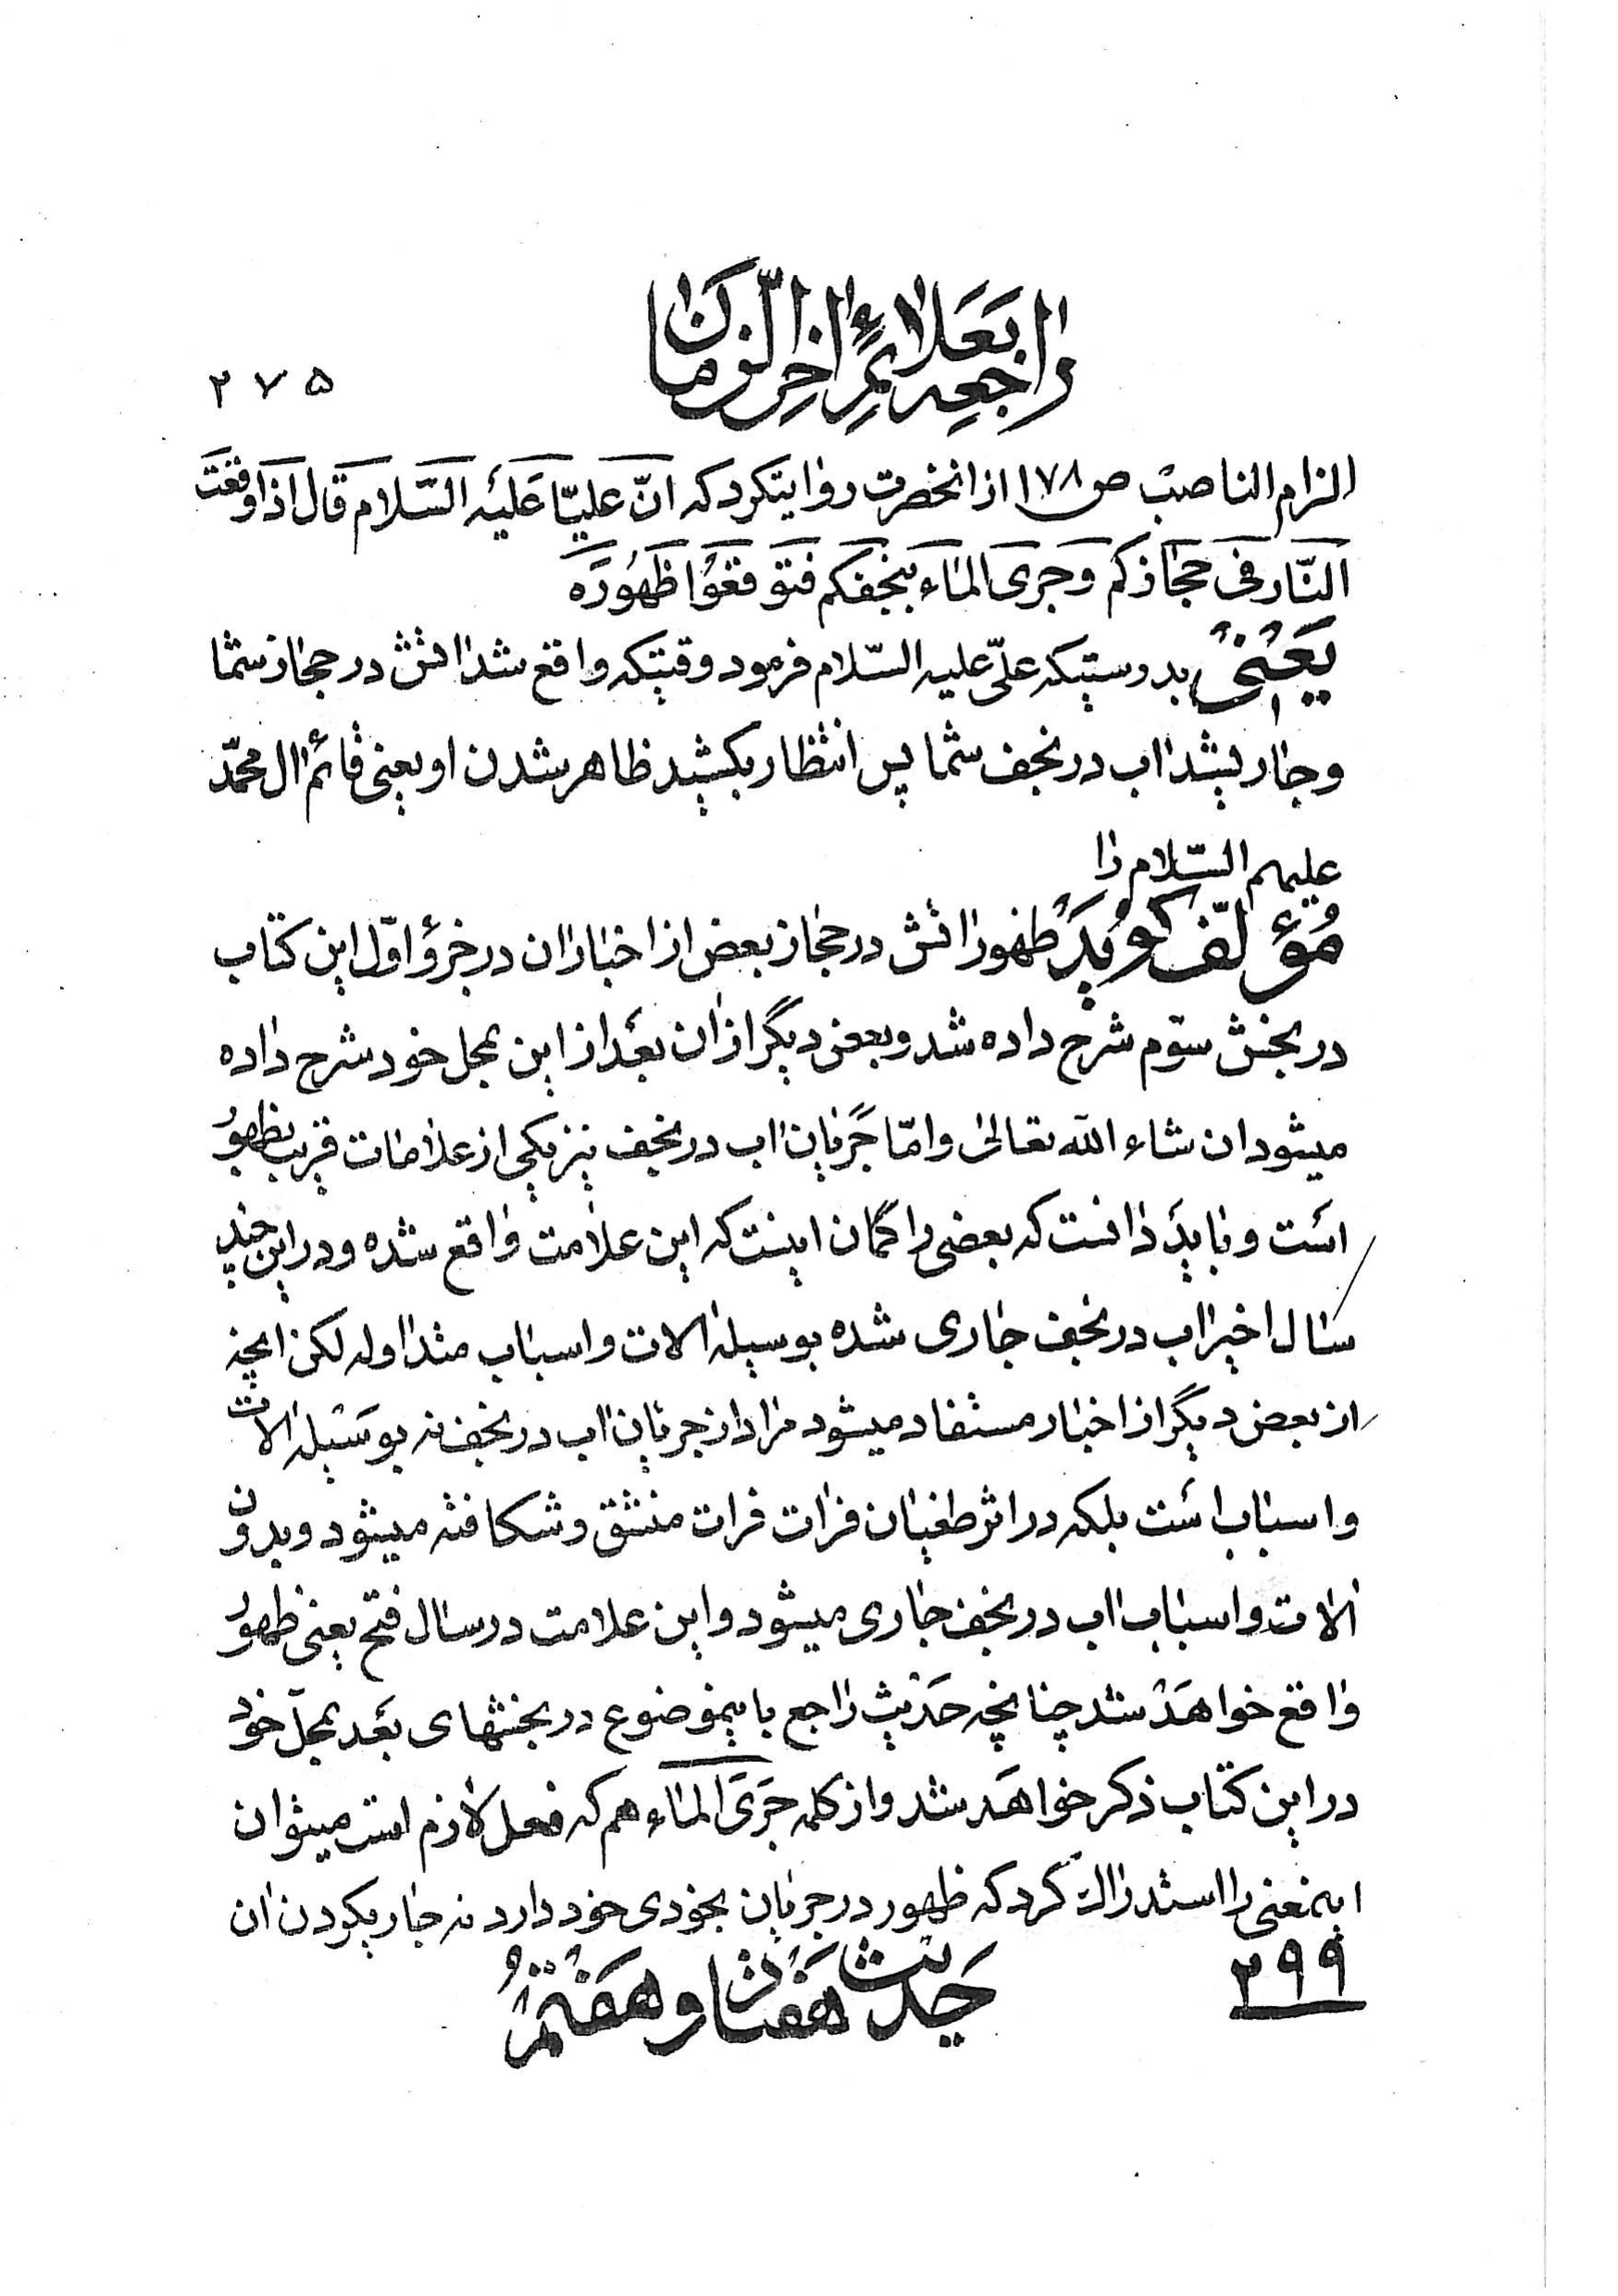 راجعه بعلائم اخر الزمان
۲۷۵
الزام الناصب ص ۱۷۸ از انحضرت روایتکرد که انّ علیّا علیه السّلام قال اذا وقعت
النّار فی حجازکم و جری الماء بنجفکم فتوقعوا ظهوره
یعنی بدرستیکه علیّ علیه السّلام فرمود وقتیکه واقع شد اتش در حجاز شما
و جاریشد اب در نجف شما پس انتظار بکشید ظاهر شدن او یعنی قائم ال محمّد
علیهم السّلام را
مؤلّف گوید ظهور اتش در حجاز بعض از اخبار ان در جزؤ اوّل این کتاب
در بخش سوّم شرح داده شد و بعض دیگر از ان بعد از این بمحل خود شرح داده
میشود ان شاء الله تعالی و امّا جریان اب در نجف نیز یکی از علامات قریب بظهور
است و باید دانست که بعضی را گمان اینست که این علامت واقع شده و در این چند
سال اخیر اب در نجف جاری شده بوسیله الات و اسباب متداوله لکن انچه
از بعض دیگر از اخبار مستفاد میشود مراد از جریان اب در نجف نه بوسیله الات
و اسباب است بلکه در اثر طغیان فرات فرات منشق و شکافته میشود و بدون
الات و اسباب اب در نجف جاری میشود و این علامت در سال فتح یعنی ظهور
واقع خواهد شد چنانچه حدیث راجع باینموضوع در بخشهای بعد بمحلّ خود
در این کتاب ذکر خواهد شد و از کلمه جری الماء هم که فعل لازم است میتوان
اینمعنی را استدراک کرد که ظهور در جریان بخودی خود دارد نه جاریکردن ان
۲۹۹ حدیث هفتاد و هفتم